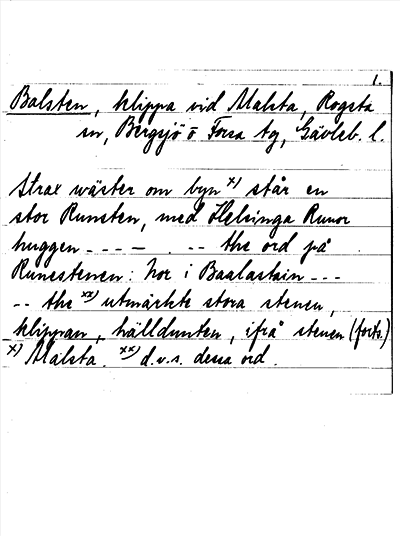 1.
Balsten, klippa vid Malsta, Rogsta
sn, Bergsjö o Forsa tg, Gävleb. l.
Strax wäster om byn x) står en
stor Runsten, med Helsinga Runor
huggen - - - - . - - the ord på
Runestenen: hor i Baalastain - - -
- - the xx) utmärkte stora stenen,
klippan, hälldunten, ifrå stenen (forts.)
x) Malsta. xx) d.v.s. dessa ord.